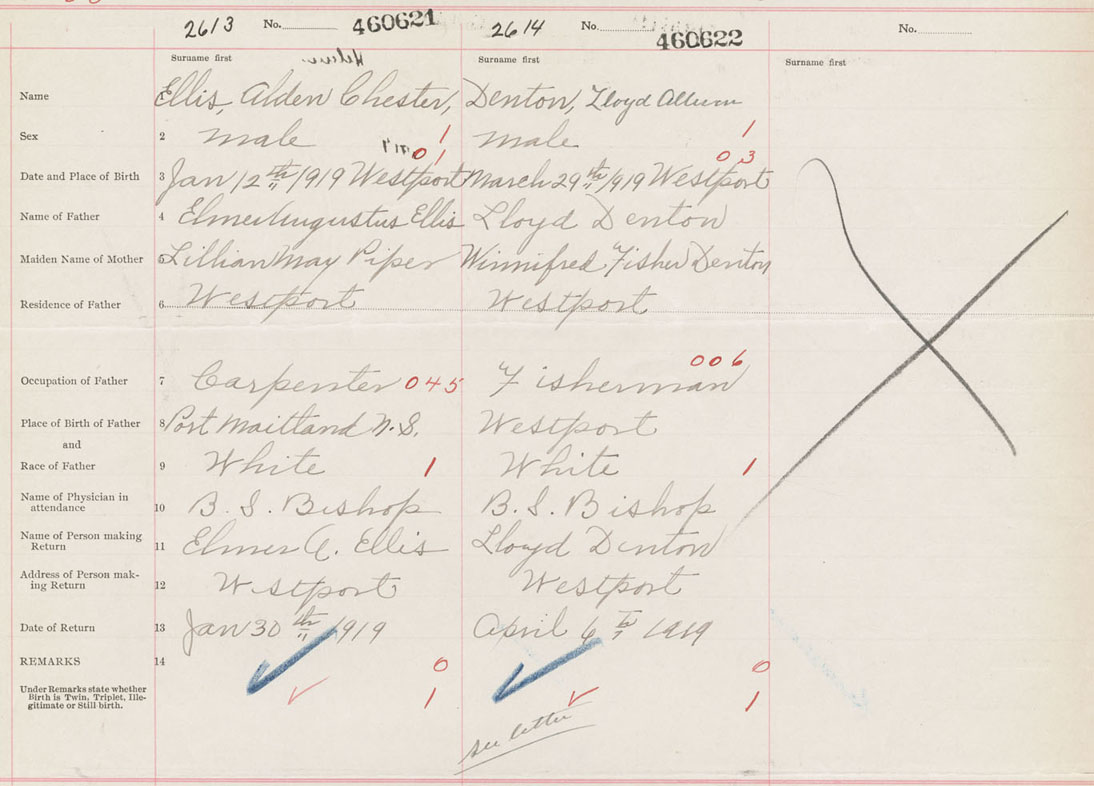 2613 No. 460621 2614 No. 460622 No.
Surname first Surname first Surname first
Name 1 Ellis, Alden Chester, Denton, Lloyd Allum
Sex 2 male 1 male 1
01 03
Date and Place of Birth 3 Jan 12th 1919 Westport March 29th 1919 Westport
Name of Father 4 Elmer Augustus Ellis Lloyd Denton
Maiden Name of Mother 5 Lillian May Piper Winnifred Fisher Denton
Residence of Father 6 Westport Westport
006
Occupation of Father 7 Carpenter 045 Fisherman
Place of Birth of Father 8 Port Maitland N.S. Westport
and
Race of Father 9 White 1 White 1
Name of Physician in
attendance 10 B. S. Bishop B. S. Bishop
Name of Person making
Return 11 Elmer A. Ellis Lloyd Denton
Address of Person mak-
ing Return 12 Westport Westport
Date of Return 13 Jan 30th 1919 April 6th 1919
REMARKS 14 0 0
Under Remarks state whether
Birth is Twin, Triplet, Ille-
gitimate or Still birth. 1 1
see letter